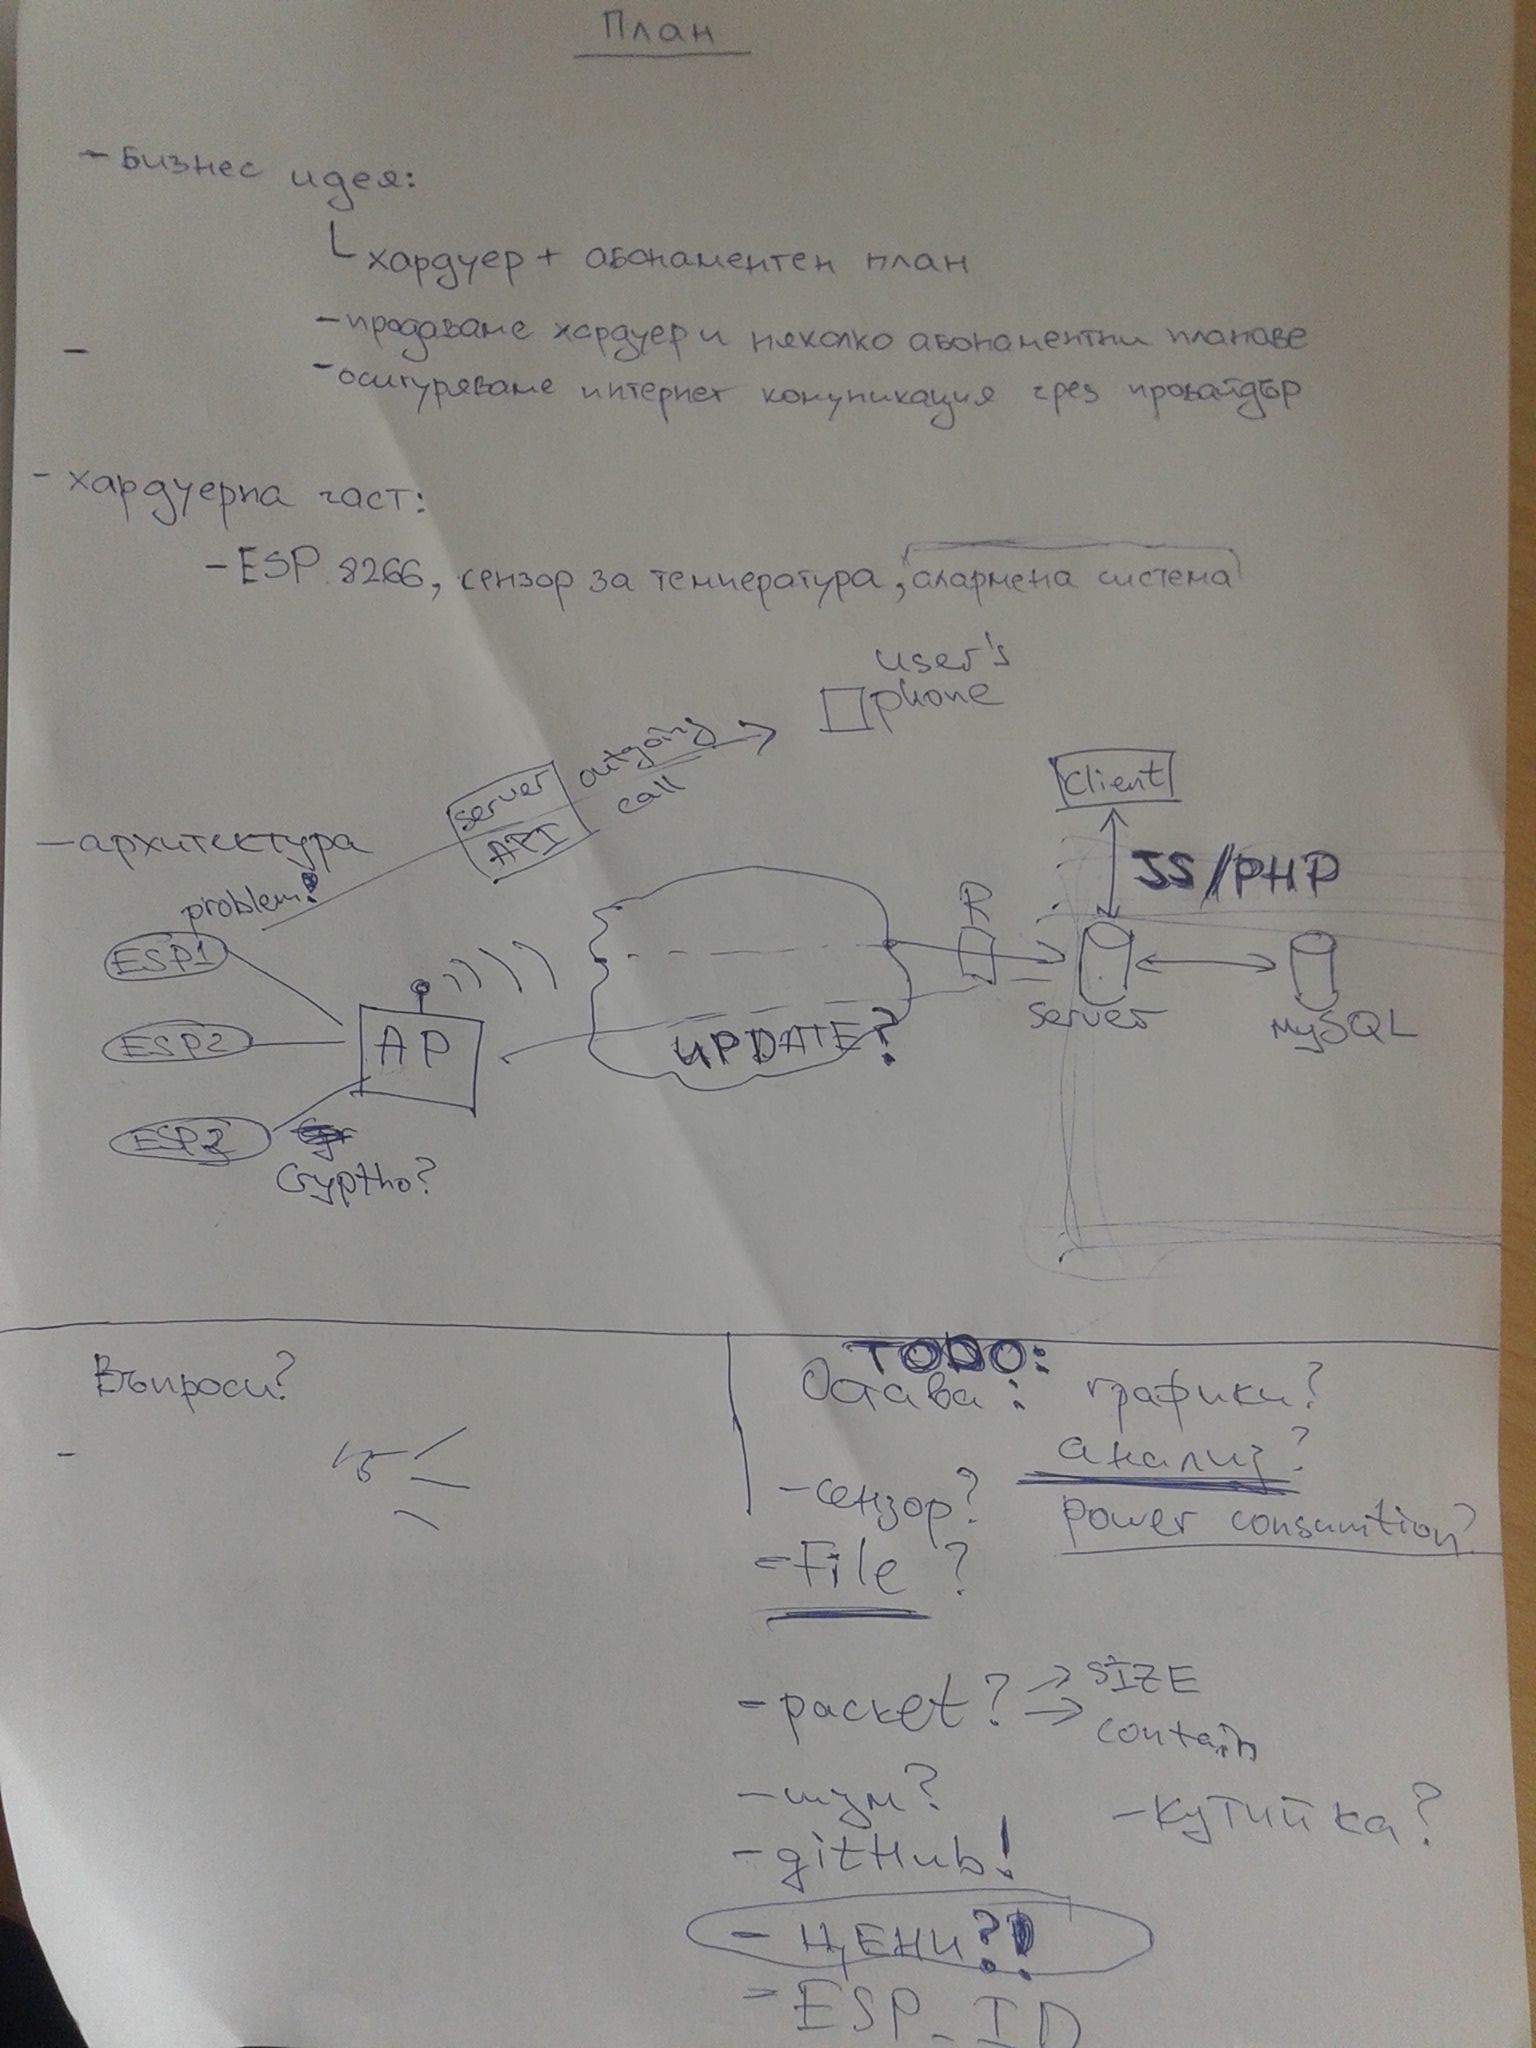 План
- Бизнес идея:
хардуер + абонаментен план
- продаваме хардуер и няколко абонаментни планове
-
- осигуряваме интернет комуникация чрез провайдър
- хардуерна част:
- ESP 8266, сензор за температура, алармена система
user's
phone
outgoing
call
server
API
client
- архитектура
problem!
JS/PHP
R
ESP1
AP
ESP2
UPDATE?
server
MySQL
ESP3
Cryptho?
Въпроси?
-
TODO:
Остава: графики?
анализ?
- сензор?
power consumtion?
- File ?
- packet? → SIZE
→ contain
- шум?
- кутийка?
- gitHub!
- ЦЕНИ?!
- ESP_ID